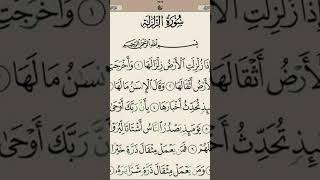 سُورَةُ الزَّلْزَلَةِ
بِسْمِ اللَّهِ الرَّحْمَٰنِ الرَّحِيمِ
إِذَا زُلْزِلَتِ الْأَرْضُ زِلْزَالَهَا ١ وَأَخْرَجَتِ
الْأَرْضُ أَثْقَالَهَا ٢ وَقَالَ الْإِنسَٰنُ مَا لَهَا ٣
ئِذٍ تُحَدِّثُ أَخْبَارَهَا ٤ بِأَنَّ رَبَّكَ أَوْحَىٰ
ئِذٍ يَصْدُرُ النَّاسُ أَشْتَاتًا لِّيُرَوْا
فَمَن يَعْمَلْ مِثْقَالَ ذَرَّةٍ خَيْرًا
وَمَن يَعْمَلْ مِثْقَالَ ذَرَّةٍ شَرًّا يَرَهُ ٨